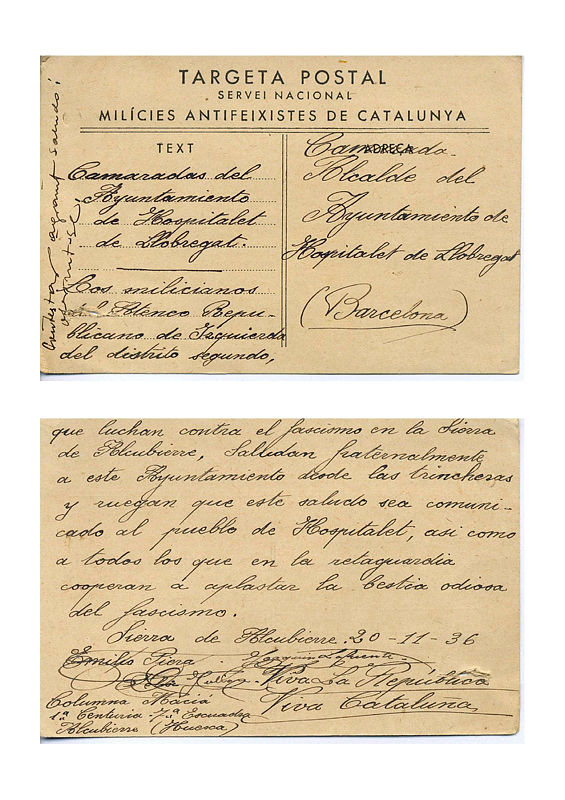 TARGETA POSTAL
SERVEI NACIONAL
MILÍCIES ANTIFEIXISTES DE CATALUNYA
TEXT
Camaradas del
Ayuntamiento
de Hospitalet
de Llobregat.
Los milicianos
Ateneo Repu-
blicano de Izquierda
del distrito segundo,
ADREÇA
Camarada
Alcalde del
Ayuntamiento de
Hospitalet de Llobregat
(Barcelona)
Contestar agraint saludo!
que luchan contra el fascismo en la Sierra
de Alcubierre, Saludan fraternalmente
a este Ayuntamiento desde las trincheras
y ruegan que este saludo sea comuni-
cado al pueblo de Hospitalet, asi como
a todos los que en la retaguardia
cooperan a aplastar la bestia odiosa
del fascismo.
Sierra de Alcubierre. 20-11-36
Emilio Piera
Viva La República
Viva Cataluna
Columna Maciá
1ª Centuria - 7ª Escuadra
Alcubierre (Huesca)